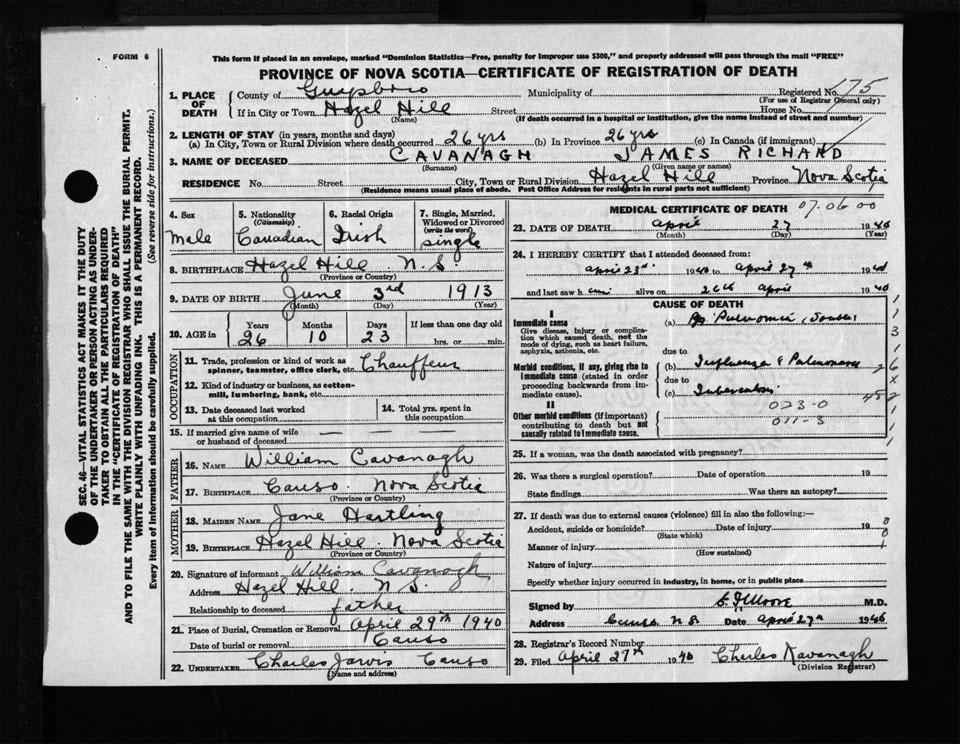 FORM 6
This form if placed in an envelope, marked "Dominion Statistics—Free, penalty for improper use $300," and properly addressed will pass through the mail "FREE"
PROVINCE OF NOVA SCOTIA—CERTIFICATE OF REGISTRATION OF DEATH
SEC. 46—VITAL STATISTICS ACT MAKES IT THE DUTY
OF THE UNDERTAKER OR PERSON ACTING AS UNDER-
TAKER TO OBTAIN ALL THE PARTICULARS REQUIRED
IN THE "CERTIFICATE OF REGISTRATION OF DEATH"
AND TO FILE THE SAME WITH THE DIVISION REGISTRAR WHO SHALL ISSUE THE BURIAL PERMIT.
WRITE PLAINLY WITH UNFADING INK. THIS IS A PERMANENT RECORD.
Every item of information should be carefully supplied. (See reverse side for instructions.)
1. PLACE OF DEATH
County of Guysboro Municipality of Registered No. 175
(For use of Registrar General only)
If in City or Town Hazel Hill Street House No.
(Name) (If death occurred in a hospital or institution, give the name instead of street and number)
2. LENGTH OF STAY (in years, months and days)
(a) In City, Town or Rural Division where death occurred 26 yrs (b) In Province 26 yrs (c) In Canada (if immigrant)
3. NAME OF DECEASED CAVANAGH JAMES RICHARD
(Surname) (Given name or names)
RESIDENCE No. Street City, Town or Rural Division Hazel Hill Province Nova Scotia
(Residence means usual place of abode. Post Office Address for residents in rural parts not sufficient)
4. Sex
Male
5. Nationality (Citizenship)
Canadian
6. Racial Origin
Irish
7. Single, Married, Widowed or Divorced (write the word)
single
8. BIRTHPLACE Hazel Hill N.S.
(Province or Country)
9. DATE OF BIRTH June 3rd 1913
(Month) (Day) (Year)
10. AGE in Years Months Days If less than one day old
26 10 23 hrs. or min.
OCCUPATION
11. Trade, profession or kind of work as spinner, teamster, office clerk, etc. Chauffeur
12. Kind of industry or business, as cotton-mill, lumbering, bank, etc.
13. Date deceased last worked at this occupation
14. Total yrs. spent in this occupation
15. If married give name of wife or husband of deceased — — — —
FATHER
16. NAME William Cavanagh
17. BIRTHPLACE Canso. Nova Scotia
(Province or Country)
MOTHER
18. MAIDEN NAME Jane Hartling
19. BIRTHPLACE Hazel Hill. Nova Scotia
(Province or Country)
20. Signature of informant William Cavanagh
Address Hazel Hill. N.S.
Relationship to deceased father
21. Place of Burial, Cremation or Removal April 29th 1940
Date of burial or removal Canso
22. UNDERTAKER Charles Jarvis Canso
(Name and address)
MEDICAL CERTIFICATE OF DEATH 07.06 00
23. DATE OF DEATH April 27 1940
(Month) (Day) (Year)
24. I HEREBY CERTIFY that I attended deceased from:
April 23rd 1940 to April 27th 1940
and last saw him alive on 26th April 1940
CAUSE OF DEATH
I
Immediate cause
Give disease, injury or complication which caused death, not the mode of dying, such as heart failure, asphyxia, asthenia, etc.
(a)
due to
Morbid conditions, if any, giving rise to immediate cause (stated in order proceeding backwards from immediate cause).
(b) Influenza & Pulmonary
due to
(c)
II
Other morbid conditions (if important) contributing to death but not causally related to immediate cause.
023-0
011-3
25. If a woman, was the death associated with pregnancy?
26. Was there a surgical operation? Date of operation 19
State findings Was there an autopsy?
27. If death was due to external causes (violence) fill in also the following:—
Accident, suicide or homicide? Date of injury 19
(State which)
Manner of injury
(How sustained)
Nature of injury
Specify whether injury occurred in industry, in home, or in public place
Signed by Moore M.D.
Address Canso N.S. Date April 27th 1940
28. Registrar's Record Number
29. Filed April 27th 1940 Charles Kavanagh
(Division Registrar)